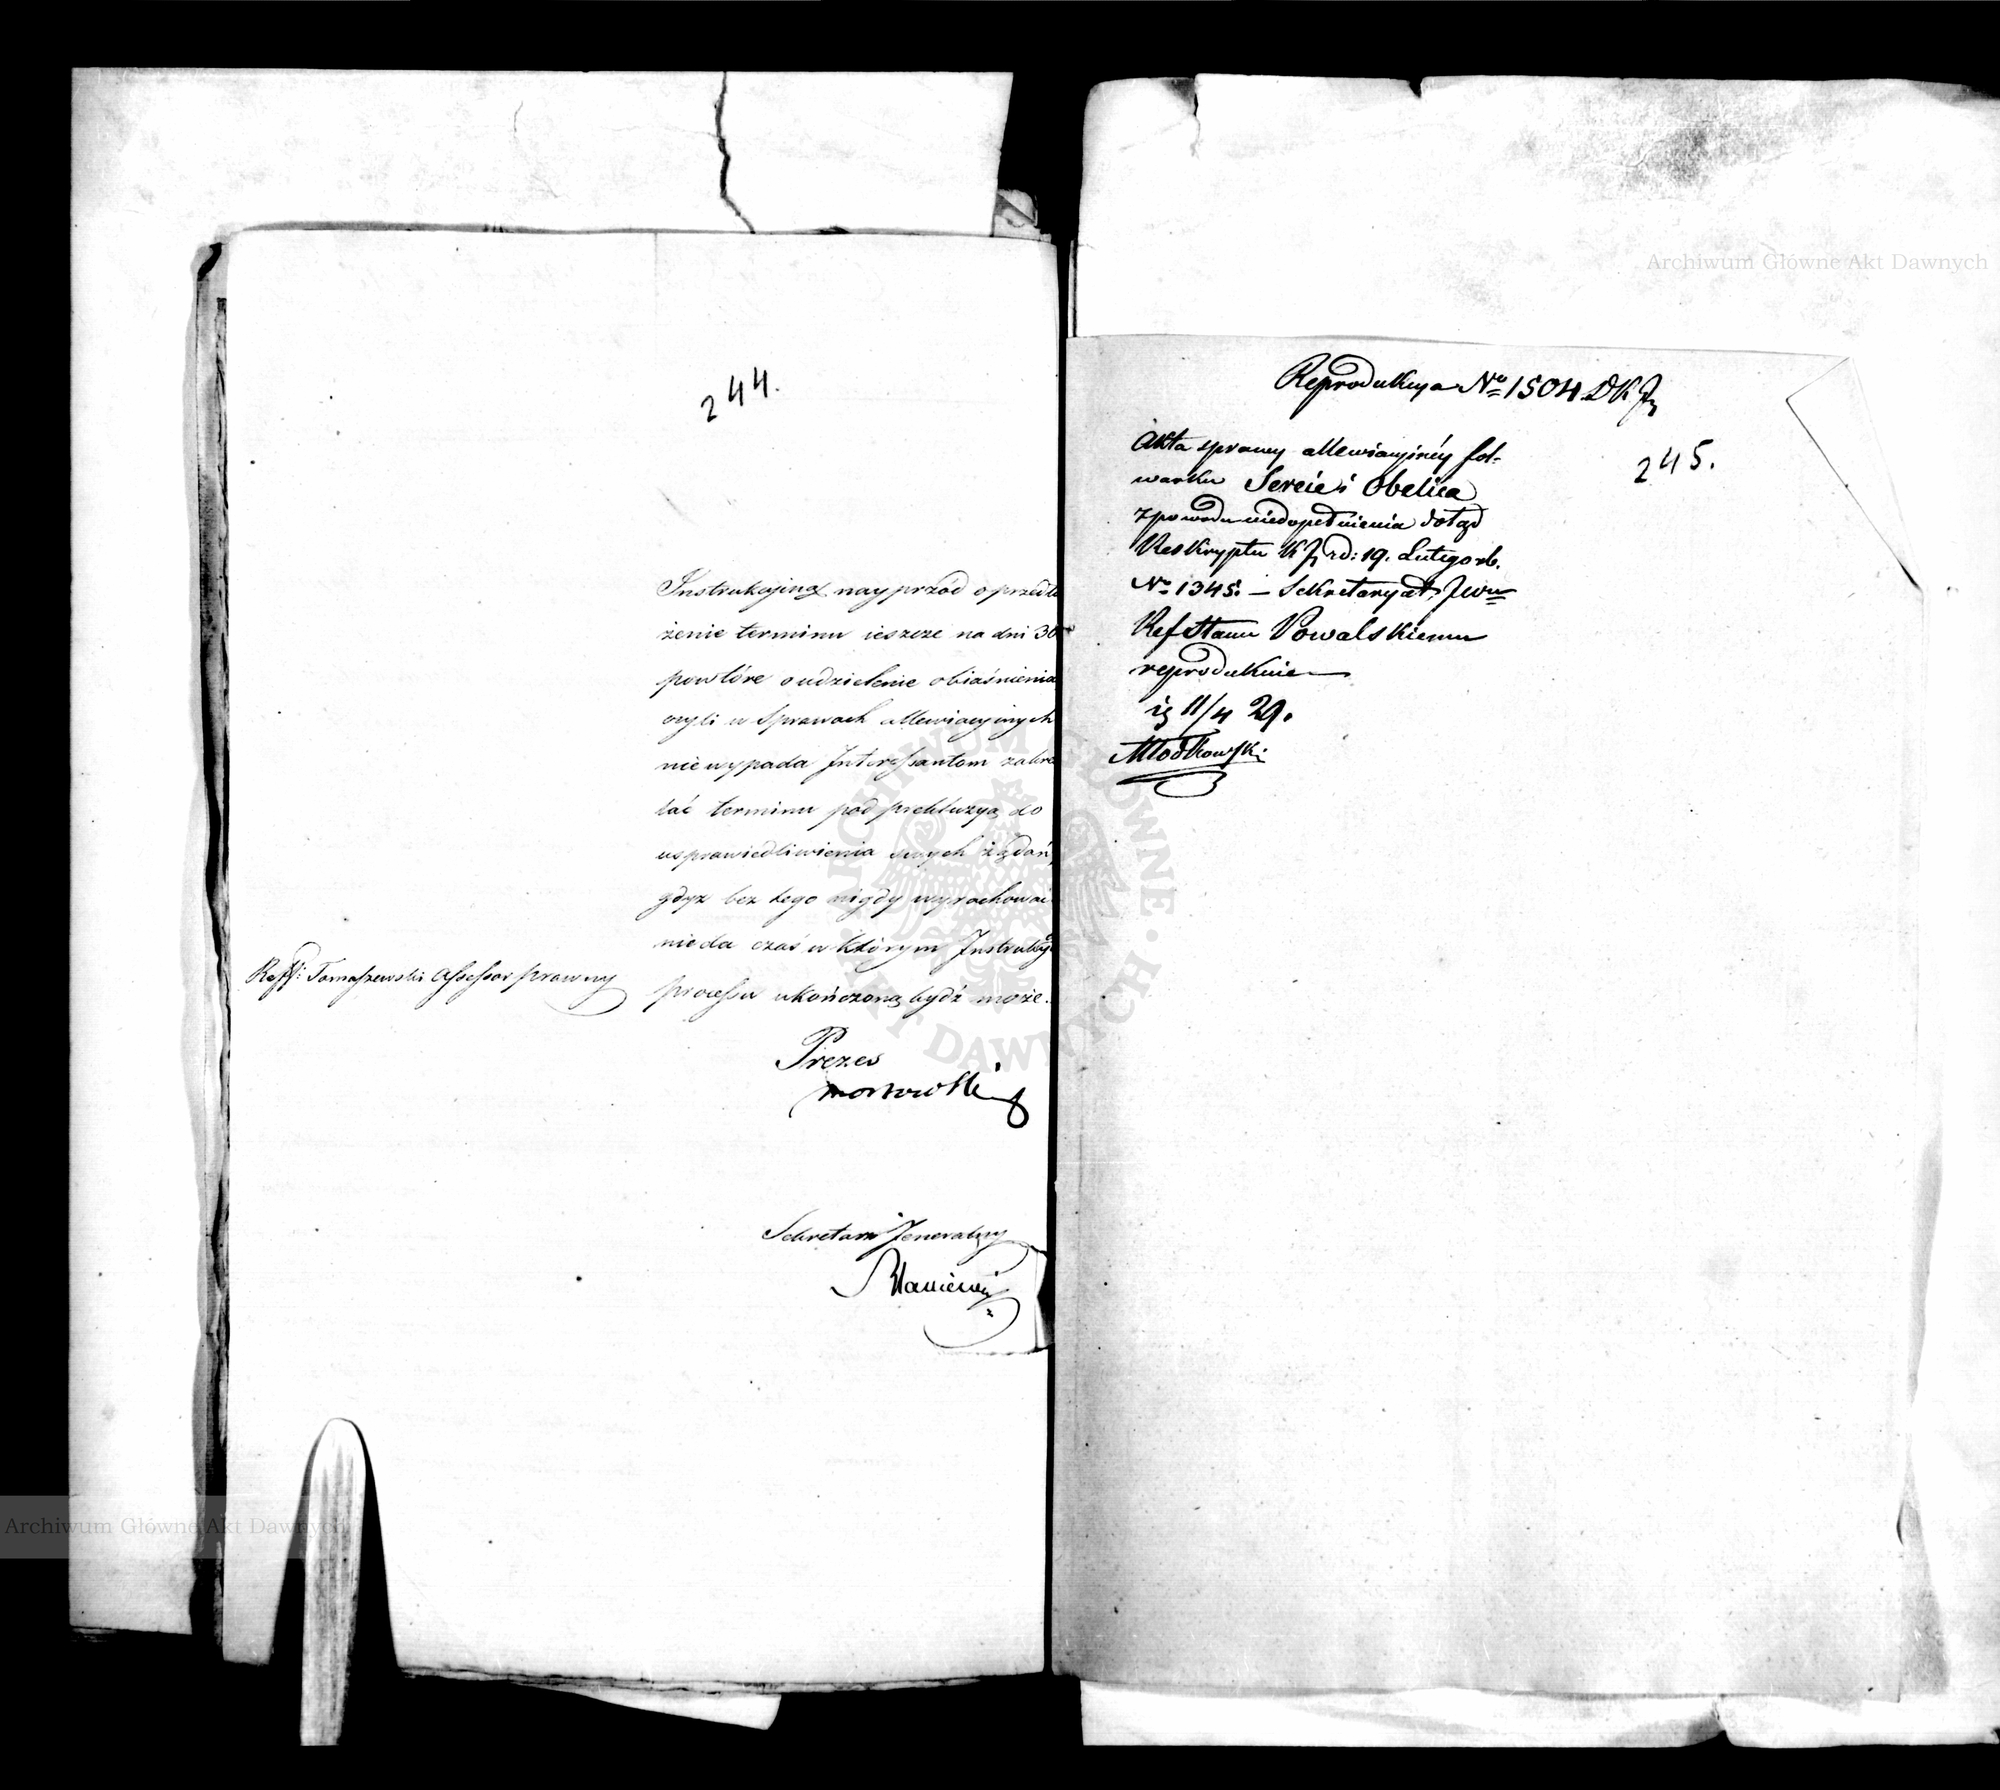 244.
Instrukcyiną nayprzód o przedłu
żenie terminu ieszcze na dni 30
powtóre o udzielenie obiaśnienia
czyli w Sprawach allewiacyinych
nie wypada Interessantom zakre
ślać terminu pod prekluzyą do
usprawiedliwienia swych żądań,
gdyż bez tego nigdy wyrachować
nieda czas w którym Instrukcya
processu ukończoną bydź może.
Reff: Tomaszewski Assessor prawny
Prezes
Sekretarz Jeneralny
Reprodukcya No 1504
245.
Akta sprawy allewiacyinéy fol-
warku Sereie i Obelica
z powodu niedopełnienia dotąd
Reskryptu K z d: 19. Lutego rb.
No 1345. — Sekretaryat JWu
Ref Stanu Powalskiemu
reprodukuie
11/4 29.
Młodkowski
Archiwum Główne Akt Dawnych
Archiwum Główne Akt Dawnych
ARCHIWUM GŁÓWNE AKT DAWNYCH